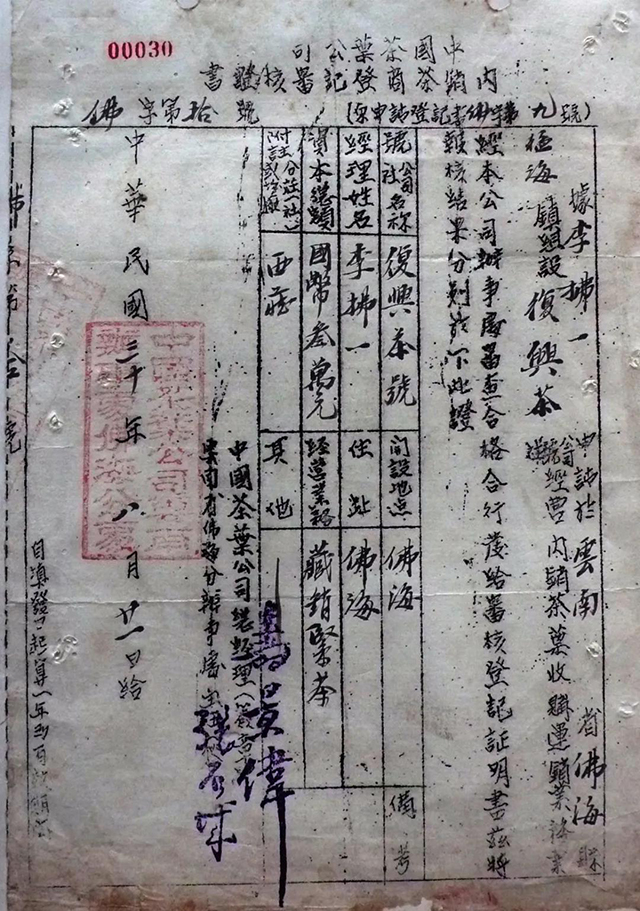 00030
中國茶葉公司
內銷茶商登記審核證書
佛字第拾號
(原申請登記書佛字第九號)
據李拂一申請於雲南省佛海縣
佛海鎮組設復興茶號經營內銷茶葉收購運銷業務業
經本公司辦事處審查合格合行發給審核登記証明書茲將
報核結果分別於下此證
號社公司名稱
復興茶號
開設地点
佛海
備考
經理姓名
李拂一
住址
佛海
資本總額
國幣叁萬元
經營業務
藏銷緊茶
附註分莊(社)
西藏
其他
中國茶葉公司總經理
壽景偉
雲南省佛海分辦事處主任
中華民國三十年八月廿一日給
自填發日起算一年為有效期間